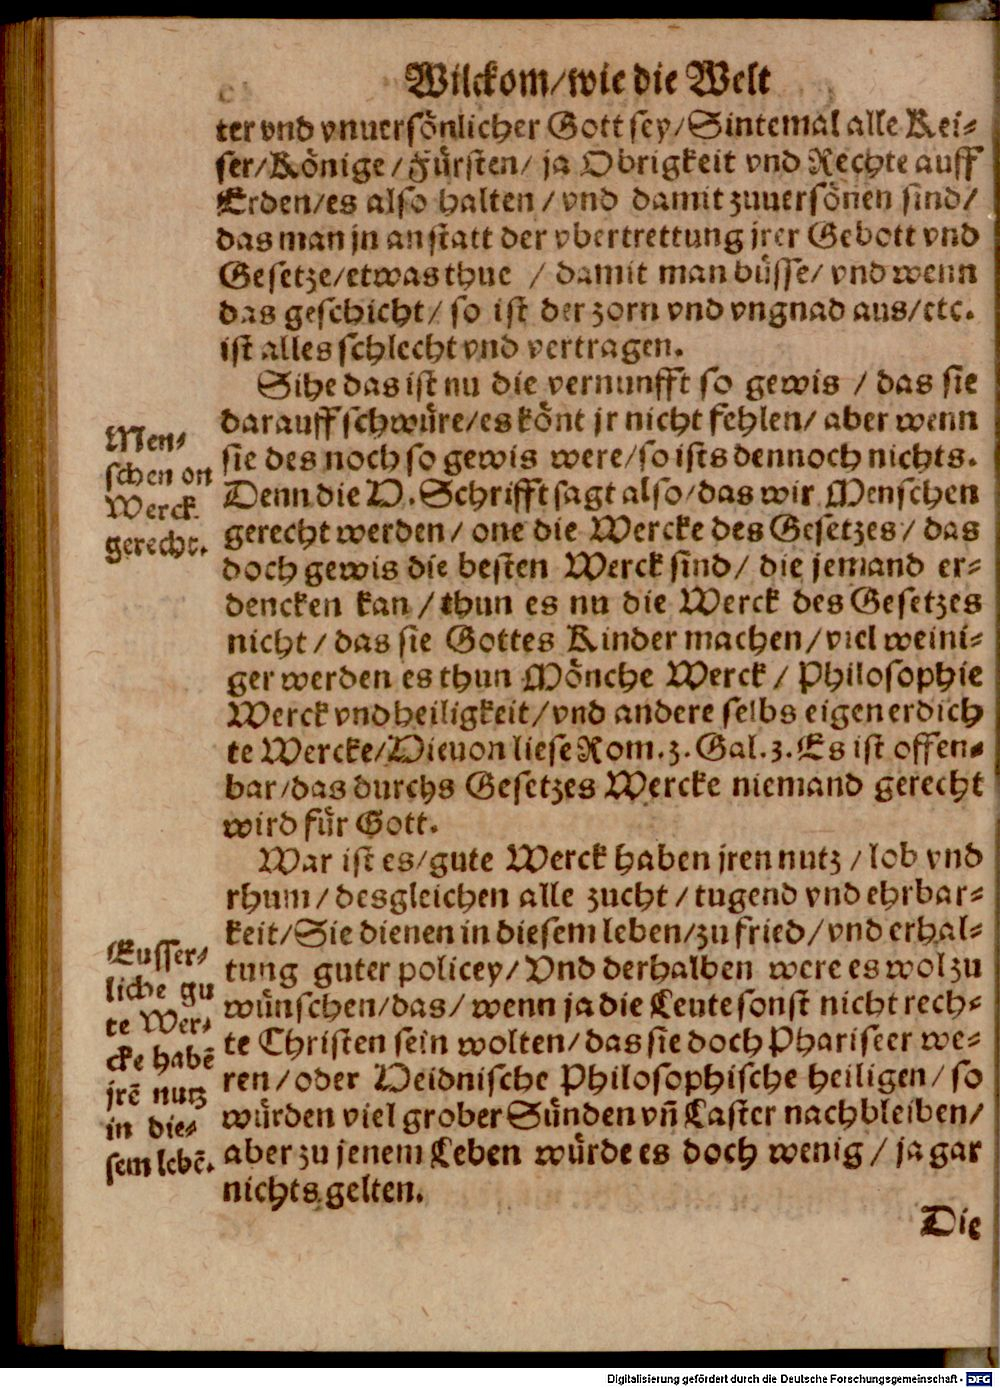 Wilckom/wie die Welt
ter vnd vnuersönlicher Gott sey/Sintemal alle Kei-
ser/Könige/Fürsten/ ja Obrigkeit vnd Rechte auff
Erden/es also halten/vnd damit zuuersönen sind/
das man jn an statt der vbertrettung jrer Gebott vnd
Gesetze/etwas thue / damit man büsse/vnd wenn
das geschicht/ so ist der zorn vnd vngnad aus/etc.
ist alles schlecht vnd vertragen.
Sihe das ist nu die vernunfft so gewis / das sie
darauff schwüre/es könt jr nicht fehlen/ aber wenn
sie des noch so gewis were/so ists dennoch nichts.
Denn die H. Schrifft sagt also/das wir Menschen
gerecht werden/ one die Wercke des Gesetzes/ das
doch gewis die besten Werck sind/ die jemand er-
dencken kan/thun es nu die Werck des Gesetzes
nicht/das sie Gottes Kinder machen/viel weini-
ger werden es thun Mönche Werck / Philosophie
Werck vnd heiligkeit/vnd andere selbs eigen erdich
te Wercke/Hieuon liese Rom.3. Gal.3. Es ist offen-
bar/das durchs Gesetzes Wercke niemand gerecht
wird für Gott.
War ist es/gute Werck haben jren nutz/lob vnd
rhum/desgleichen alle zucht/tugend vnd ehrbar-
keit/Sie dienen in diesem leben/zu fried/vnd erhal-
tung guter policey/Vnd derhalben were es wol zu
wünschen/das/ wenn ja die Leute sonst nicht rech-
te Christen sein wolten/das sie doch Phariseer we-
ren/oder Heidnische Philosophische heiligen/so
würden viel grober Sünden vñ Laster nachbleiben/
aber zu jenem Leben würde es doch wenig/ja gar
nichts gelten.
Die
Men-
schen on
Werck
gerecht.
Eusser-
liche gu
te Wer-
cke habē
jrē nutz
in die-
sem lebē.
Digitalisierung gefördert durch die Deutsche Forschungsgemeinschaft - DFG